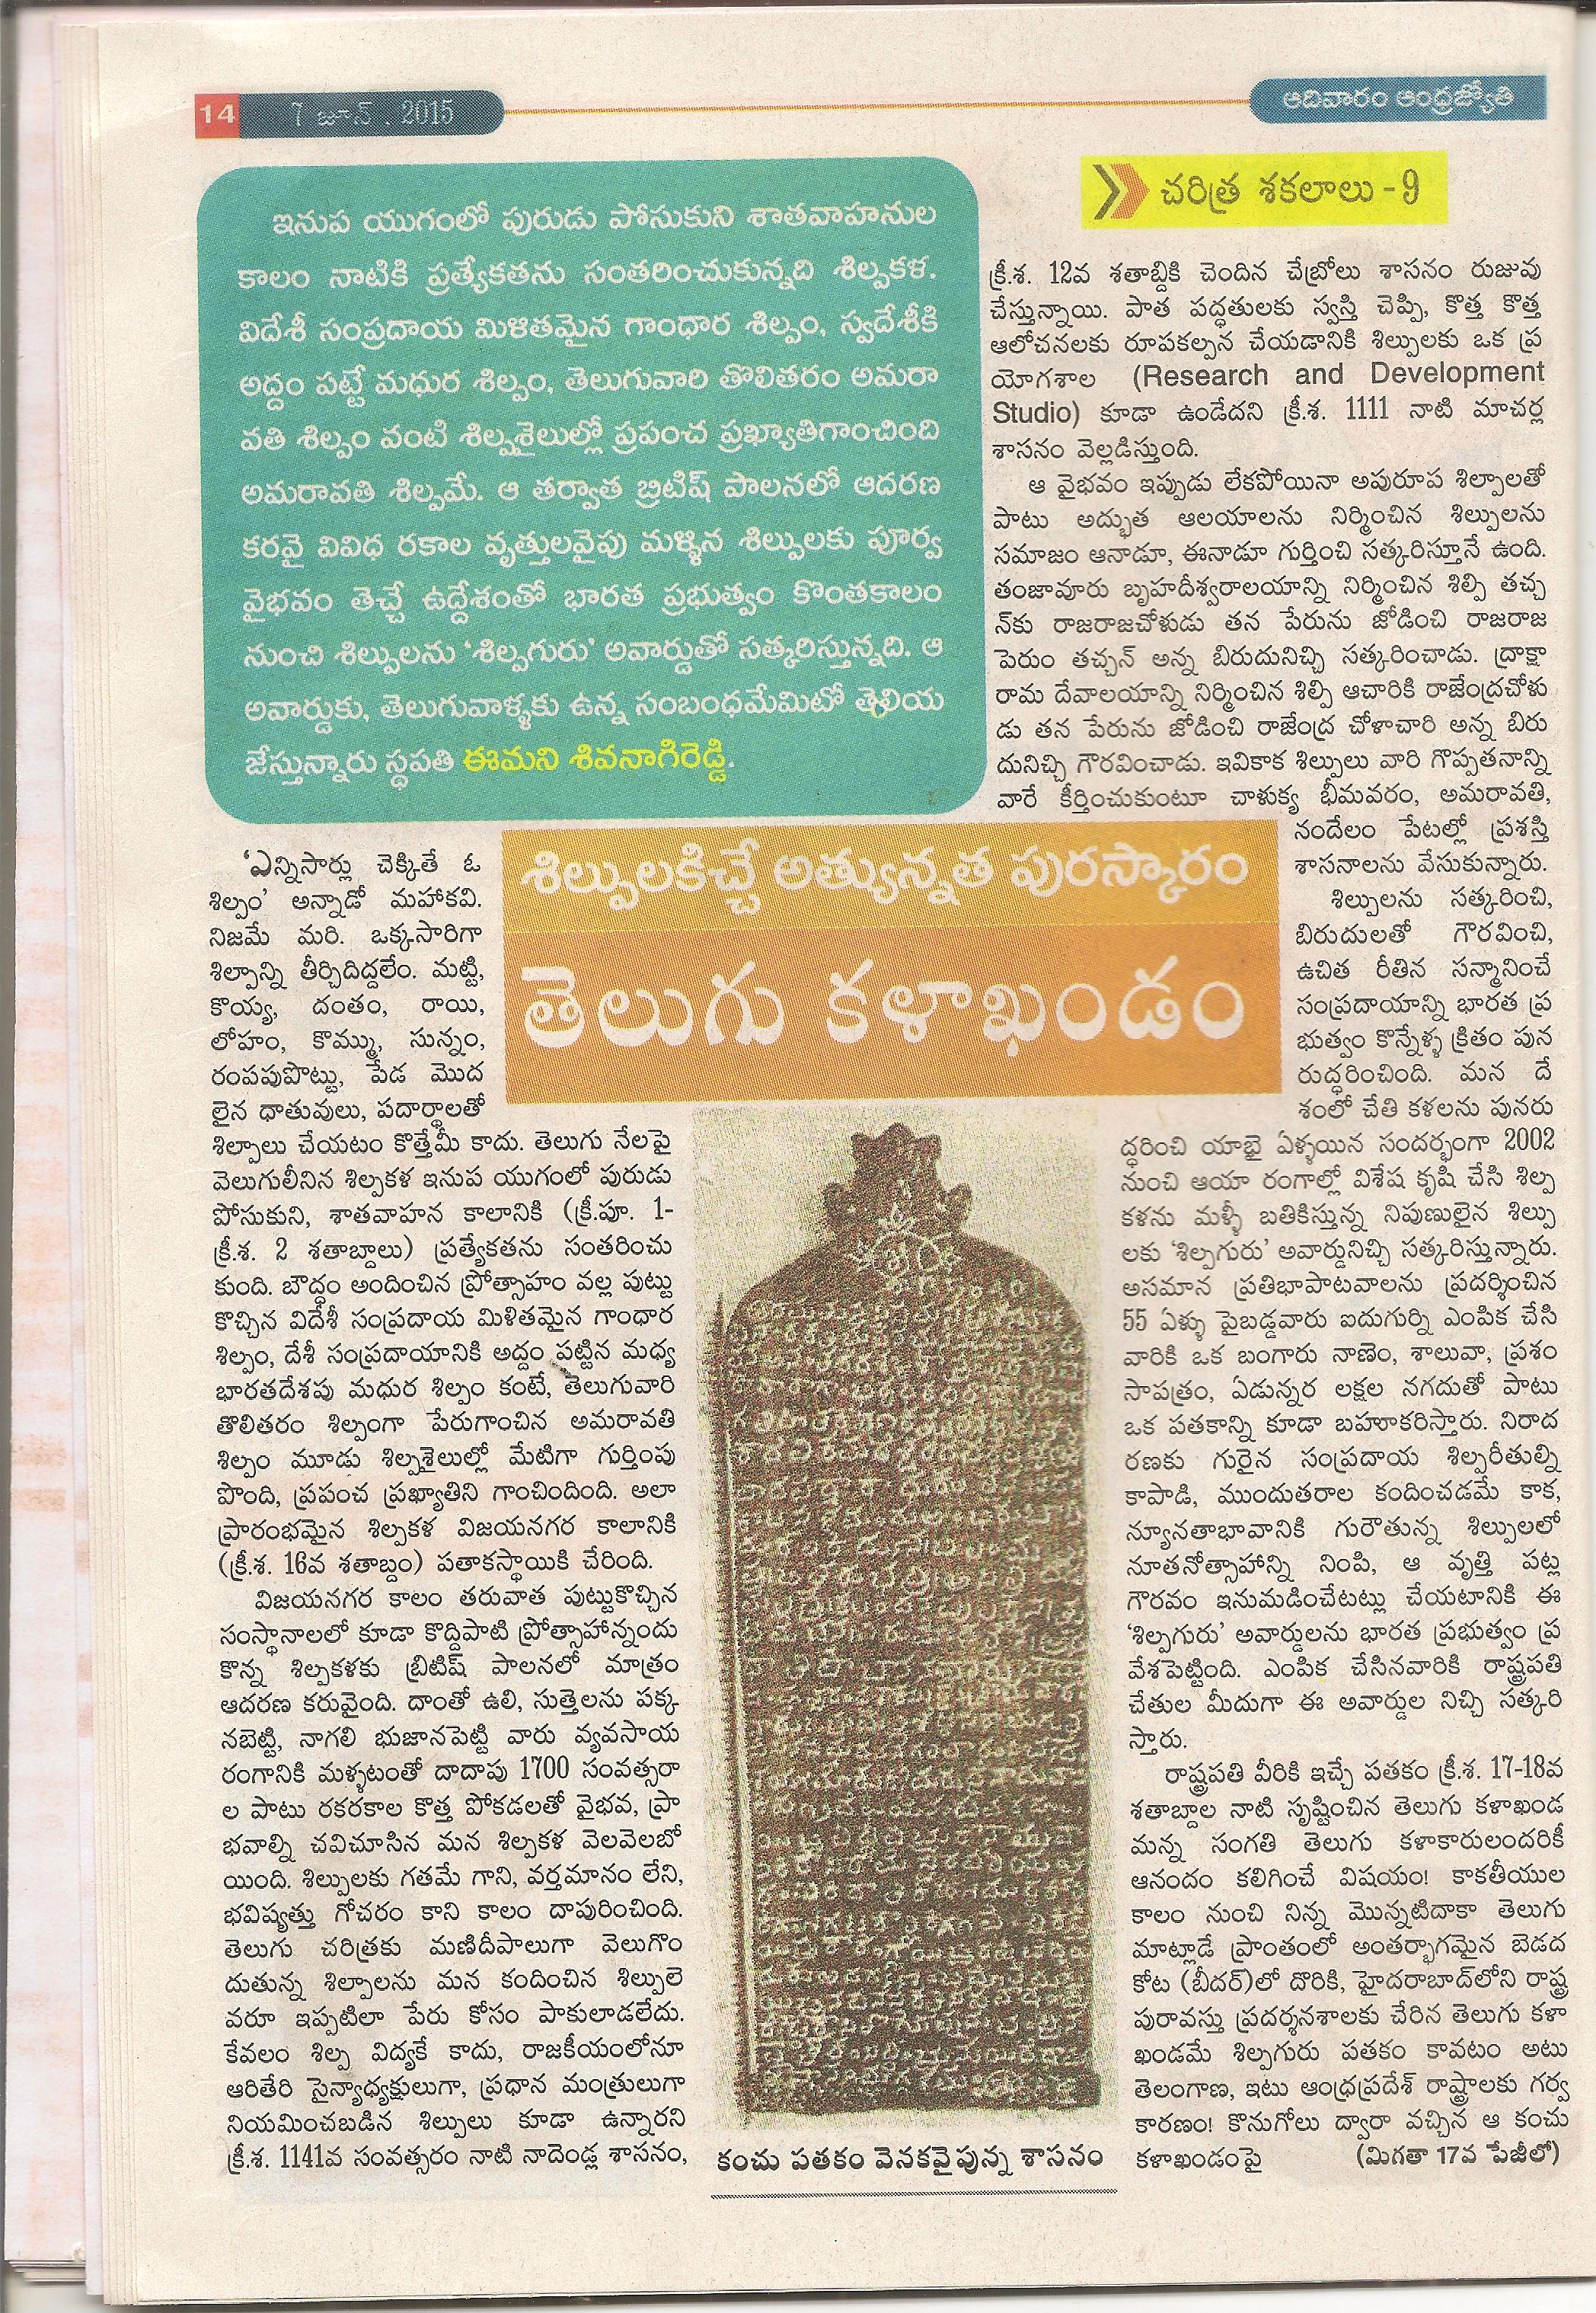 14
7 జూన్ . 2015
ఆదివారం ఆంధ్రజ్యోతి
ఇనుప యుగంలో పురుడు పోసుకుని శాతవాహనుల
కాలం నాటికి ప్రత్యేకతను సంతరించుకున్నది శిల్పకళ.
విదేశీ సంప్రదాయ మిళితమైన గాంధార శిల్పం, స్వదేశీకి
అద్దం పట్టే మధుర శిల్పం, తెలుగువారి తొలితరం అమరా
వతి శిల్పం వంటి శిల్పశైలుల్లో ప్రపంచ ప్రఖ్యాతిగాంచింది
అమరావతి శిల్పమే. ఆ తర్వాత బ్రిటిష్ పాలనలో ఆదరణ
కరవై వివిధ రకాల వృత్తులవైపు మళ్ళిన శిల్పులకు పూర్వ
వైభవం తెచ్చే ఉద్దేశంతో భారత ప్రభుత్వం కొంతకాలం
నుంచి శిల్పులను ‘శిల్పగురు’ అవార్డుతో సత్కరిస్తున్నది. ఆ
అవార్డుకు, తెలుగువాళ్ళకు ఉన్న సంబంధమేమిటో తెలియ
జేస్తున్నారు స్థపతి ఈమని శివనాగిరెడ్డి.
చరిత్ర శకలాలు - 9
శిల్పులకిచ్చే అత్యున్నత పురస్కారం
తెలుగు కళాఖండం
‘ఎన్నిసార్లు చెక్కితే ఓ
శిల్పం’ అన్నాడో మహాకవి.
నిజమే మరి. ఒక్కసారిగా
శిల్పాన్ని తీర్చిదిద్దలేం. మట్టి,
కొయ్య, దంతం, రాయి,
లోహం, కొమ్ము, సున్నం,
రంపపుపొట్టు, పేడ మొద
లైన ధాతువులు, పదార్థాలతో
శిల్పాలు చేయటం కొత్తేమీ కాదు. తెలుగు నేలపై
వెలుగులీనిన శిల్పకళ ఇనుప యుగంలో పురుడు
పోసుకుని, శాతవాహన కాలానికి (క్రీ.పూ. 1-
క్రీ.శ. 2 శతాబ్దాలు) ప్రత్యేకతను సంతరించు
కుంది. బౌద్ధం అందించిన ప్రోత్సాహం వల్ల పుట్టు
కొచ్చిన విదేశీ సంప్రదాయ మిళితమైన గాంధార
శిల్పం, దేశీ సంప్రదాయానికి అద్దం పట్టిన మధ్య
భారతదేశపు మధుర శిల్పం కంటే, తెలుగువారి
తొలితరం శిల్పంగా పేరుగాంచిన అమరావతి
శిల్పం మూడు శిల్పశైలుల్లో మేటిగా గుర్తింపు
పొంది, ప్రపంచ ప్రఖ్యాతిని గాంచిందింది. అలా
ప్రారంభమైన శిల్పకళ విజయనగర కాలానికి
(క్రీ.శ. 16వ శతాబ్దం) పతాకస్థాయికి చేరింది.
విజయనగర కాలం తరువాత పుట్టుకొచ్చిన
సంస్థానాలలో కూడా కొద్దిపాటి ప్రోత్సాహాన్నందు
కొన్న శిల్పకళకు బ్రిటిష్ పాలనలో మాత్రం
ఆదరణ కరువైంది. దాంతో ఉలి, సుత్తెలను పక్క
నబెట్టి, నాగలి భుజానపెట్టి వారు వ్యవసాయ
రంగానికి మళ్ళటంతో దాదాపు 1700 సంవత్సరా
ల పాటు రకరకాల కొత్త పోకడలతో వైభవ, ప్రా
భవాల్ని చవిచూసిన మన శిల్పకళ వెలవెలబో
యింది. శిల్పులకు గతమే గాని, వర్తమానం లేని,
భవిష్యత్తు గోచరం కాని కాలం దాపురించింది.
తెలుగు చరిత్రకు మణిదీపాలుగా వెలుగొం
దుతున్న శిల్పాలను మన కందించిన శిల్పులె
వరూ ఇప్పటిలా పేరు కోసం పాకులాడలేదు.
కేవలం శిల్ప విద్యకే కాదు, రాజకీయంలోనూ
ఆరితేరి సైన్యాధ్యక్షులుగా, ప్రధాన మంత్రులుగా
నియమించబడిన శిల్పులు కూడా ఉన్నారని
క్రీ.శ. 1141వ సంవత్సరం నాటి నాదెండ్ల శాసనం,
కంచు పతకం వెనకవైపున్న శాసనం
క్రీ.శ. 12వ శతాబ్దికి చెందిన చేబ్రోలు శాసనం రుజువు
చేస్తున్నాయి. పాత పద్ధతులకు స్వస్తి చెప్పి, కొత్త కొత్త
ఆలోచనలకు రూపకల్పన చేయడానికి శిల్పులకు ఒక ప్ర
యోగశాల (Research and Development
Studio) కూడా ఉండేదని క్రీ.శ. 1111 నాటి మాచర్ల
శాసనం వెల్లడిస్తుంది.
ఆ వైభవం ఇప్పుడు లేకపోయినా అపురూప శిల్పాలతో
పాటు అద్భుత ఆలయాలను నిర్మించిన శిల్పులను
సమాజం ఆనాడూ, ఈనాడూ గుర్తించి సత్కరిస్తూనే ఉంది.
తంజావూరు బృహదీశ్వరాలయాన్ని నిర్మించిన శిల్పి తచ్చ
న్‌కు రాజరాజచోళుడు తన పేరును జోడించి రాజరాజ
పెరుం తచ్చన్ అన్న బిరుదునిచ్చి సత్కరించాడు. ద్రాక్షా
రామ దేవాలయాన్ని నిర్మించిన శిల్పి ఆచారికి రాజేంద్రచోళు
డు తన పేరును జోడించి రాజేంద్ర చోళాచారి అన్న బిరు
దునిచ్చి గౌరవించాడు. ఇవికాక శిల్పులు వారి గొప్పతనాన్ని
వారే కీర్తించుకుంటూ చాళుక్య భీమవరం, అమరావతి,
నందేలం పేటల్లో ప్రశస్తి
శాసనాలను వేసుకున్నారు.
శిల్పులను సత్కరించి,
బిరుదులతో గౌరవించి,
ఉచిత రీతిన సన్మానించే
సంప్రదాయాన్ని భారత ప్ర
భుత్వం కొన్నేళ్ళ క్రితం పున
రుద్ధరించింది. మన దే
శంలో చేతి కళలను పునరు
ద్ధరించి యాభై ఏళ్ళయిన సందర్భంగా 2002
నుంచి ఆయా రంగాల్లో విశేష కృషి చేసి శిల్ప
కళను మళ్ళీ బతికిస్తున్న నిపుణులైన శిల్పు
లకు ‘శిల్పగురు’ అవార్డునిచ్చి సత్కరిస్తున్నారు.
అసమాన ప్రతిభాపాటవాలను ప్రదర్శించిన
55 ఏళ్ళు పైబడ్డవారు ఐదుగుర్ని ఎంపిక చేసి
వారికి ఒక బంగారు నాణెం, శాలువా, ప్రశం
సాపత్రం, ఏడున్నర లక్షల నగదుతో పాటు
ఒక పతకాన్ని కూడా బహూకరిస్తారు. నిరాద
రణకు గురైన సంప్రదాయ శిల్పరీతుల్ని
కాపాడి, ముందుతరాల కందించడమే కాక,
న్యూనతాభావానికి గురౌతున్న శిల్పులలో
నూతనోత్సాహాన్ని నింపి, ఆ వృత్తి పట్ల
గౌరవం ఇనుమడించేటట్లు చేయటానికి ఈ
‘శిల్పగురు’ అవార్డులను భారత ప్రభుత్వం ప్ర
వేశపెట్టింది. ఎంపిక చేసినవారికి రాష్ట్రపతి
చేతుల మీదుగా ఈ అవార్డుల నిచ్చి సత్కరి
స్తారు.
రాష్ట్రపతి వీరికి ఇచ్చే పతకం క్రీ.శ. 17-18వ
శతాబ్దాల నాటి సృష్టించిన తెలుగు కళాఖండ
మన్న సంగతి తెలుగు కళాకారులందరికీ
ఆనందం కలిగించే విషయం! కాకతీయుల
కాలం నుంచి నిన్న మొన్నటిదాకా తెలుగు
మాట్లాడే ప్రాంతంలో అంతర్భాగమైన బెడద
కోట (బీదర్)లో దొరికి, హైదరాబాద్‌లోని రాష్ట్ర
పురావస్తు ప్రదర్శనశాలకు చేరిన తెలుగు కళా
ఖండమే శిల్పగురు పతకం కావటం అటు
తెలంగాణ, ఇటు ఆంధ్రప్రదేశ్ రాష్ట్రాలకు గర్వ
కారణం! కొనుగోలు ద్వారా వచ్చిన ఆ కంచు
కళాఖండంపై (మిగతా 17వ పేజీలో)